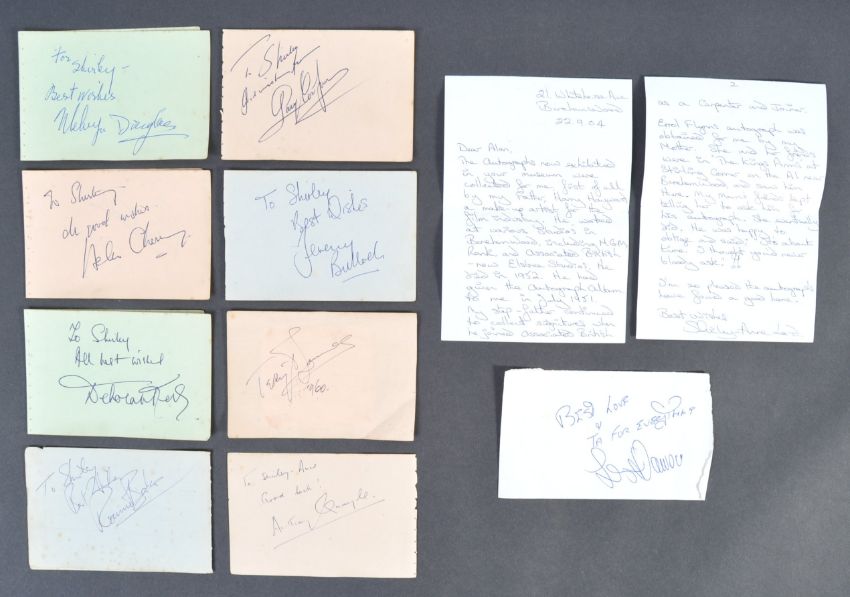 For
Shirley -
Best wishes
Melvyn Douglas
To Shirley
To Shirley -
All good wishes.
Helen Cherry
To Shirley
Best Wishes
Jeremy
Bulloch
To Shirley
All best wishes
Deborah Kerr
Terry
9/60.
To Shirley
Best Wishes
Ronnie Barker
To Shirley-Anne
Good luck!
Anthony Quayle
21 Whitehouse Ave
Borehamwood
22.9.04
Dear Alan,
The Autographs now exhibited
in your museum were
collected for me first of all
by my Father, Harry Hayward
a make-up artist for the
film industry. He worked
at various Studios in
Borehamwood, including M.G.M
Rank and Associated British
- now Elstree Studios. He
died in 1952. He had
given the Autograph Album
to me in July 1951.
My step-father continued
to collect signatures when
he joined Associated British
2
as a Carpenter and Joiner.
Errol Flynn's autograph was
obtained for me by my
Mother. She and her
were in The Kings Arms at
Stirling Corner on the A1 near
Borehamwood and saw him
there. Mum's friends kept
telling her to ask him for
his autograph. She eventually
did. He was happy to
oblige and said: "It's about
time. I thought you'd never
bloody ask!"
I'm so pleased the autographs
have found a good home.
Best Wishes
Shirley-Anne
Best Love
&
Ta for everything
Les Dawson